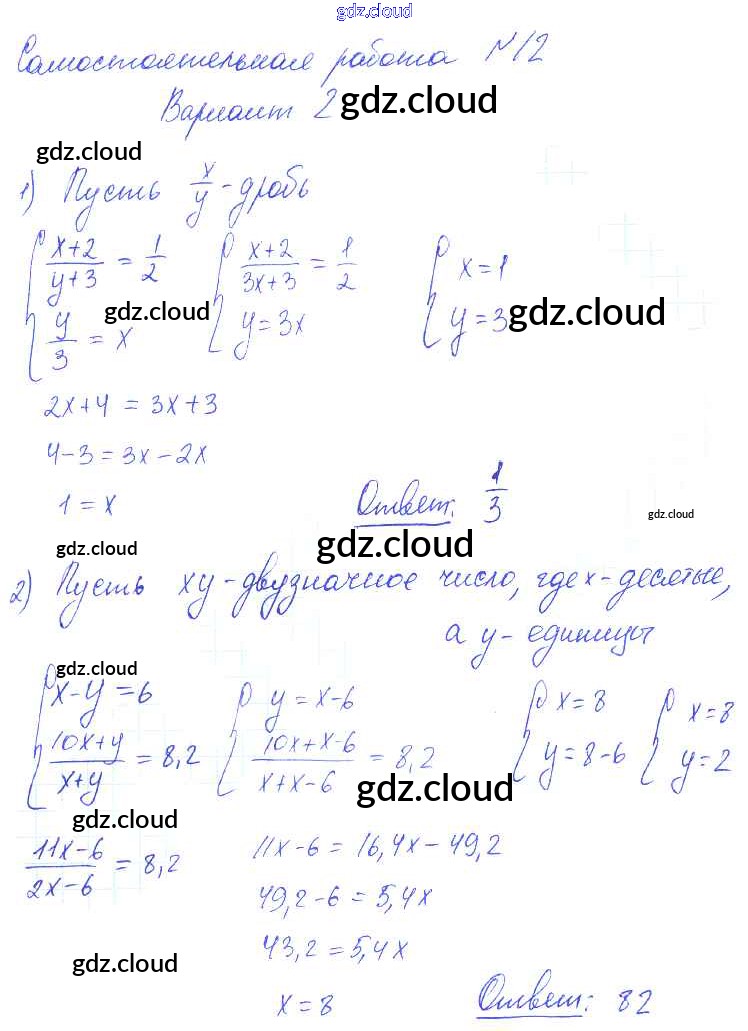 gdz.cloud
Самостоятельная работа №12
Вариант 2 gdz.cloud
gdz.cloud
1) Пусть x/y - дробь
{ (x+2)/(y+3) = 1/2 { (x+2)/(3x+3) = 1/2 { x=1
{ y/3 = x { y=3x { y=3
gdz.cloud gdz.cloud
2x+4 = 3x+3
4-3=3x-2x
1=x Ответ: 1/3
gdz.cloud
gdz.cloud gdz.cloud
2) Пусть xy-двузначное число, где x-десятые,
а y-единицы
gdz.cloud
{ x-y=6 { y=x-6 { x=8 { x=8
{ (10x+y)/(x+y) = 8,2 { (10x+x-6)/(x+x-6) = 8,2 { y=8-6 { y=2
gdz.cloud gdz.cloud
(11x-6)/(2x-6) = 8,2 11x-6=16,4x-49,2
49,2-6=5,4x
43,2=5,4x
gdz.cloud
x=8 Ответ: 82